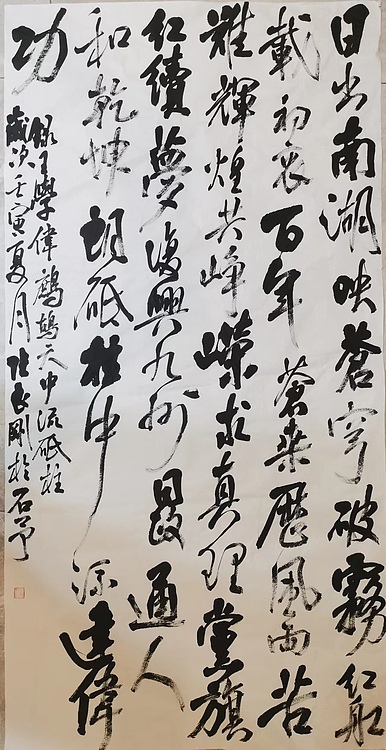 日出南湖映蒼穹破霧紅船
載初衷百年蒼桑歷風雨苦
難輝煌共崢嶸求真理黨旗
紅續夢復興九州政通人
和乾坤朗砥柱中流建偉
功
錄王學偉鷓鴣天中流砥柱
歲次壬寅夏月剛於石